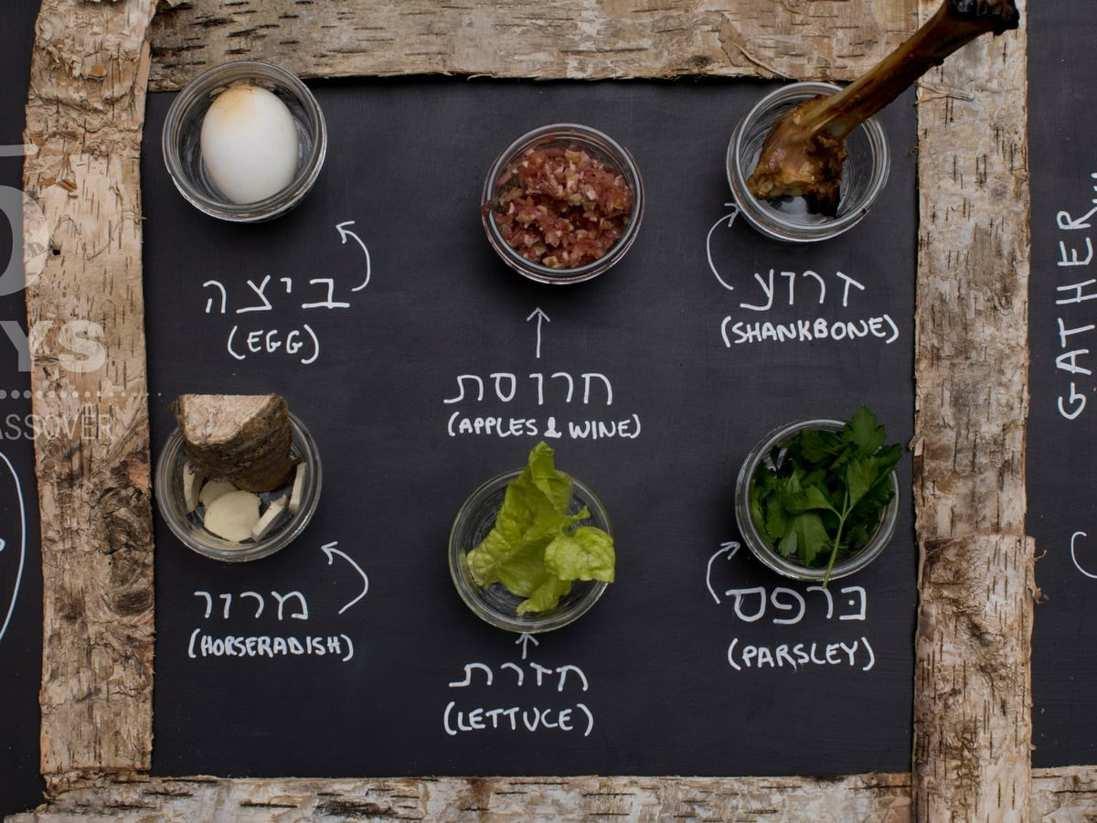 ביצה
(EGG)
חרוסת
(APPLES & WINE)
זרוע
(SHANKBONE)
מרור
(HORSERADISH)
חזרת
(LETTUCE)
כרפס
(PARSLEY)
GATHER